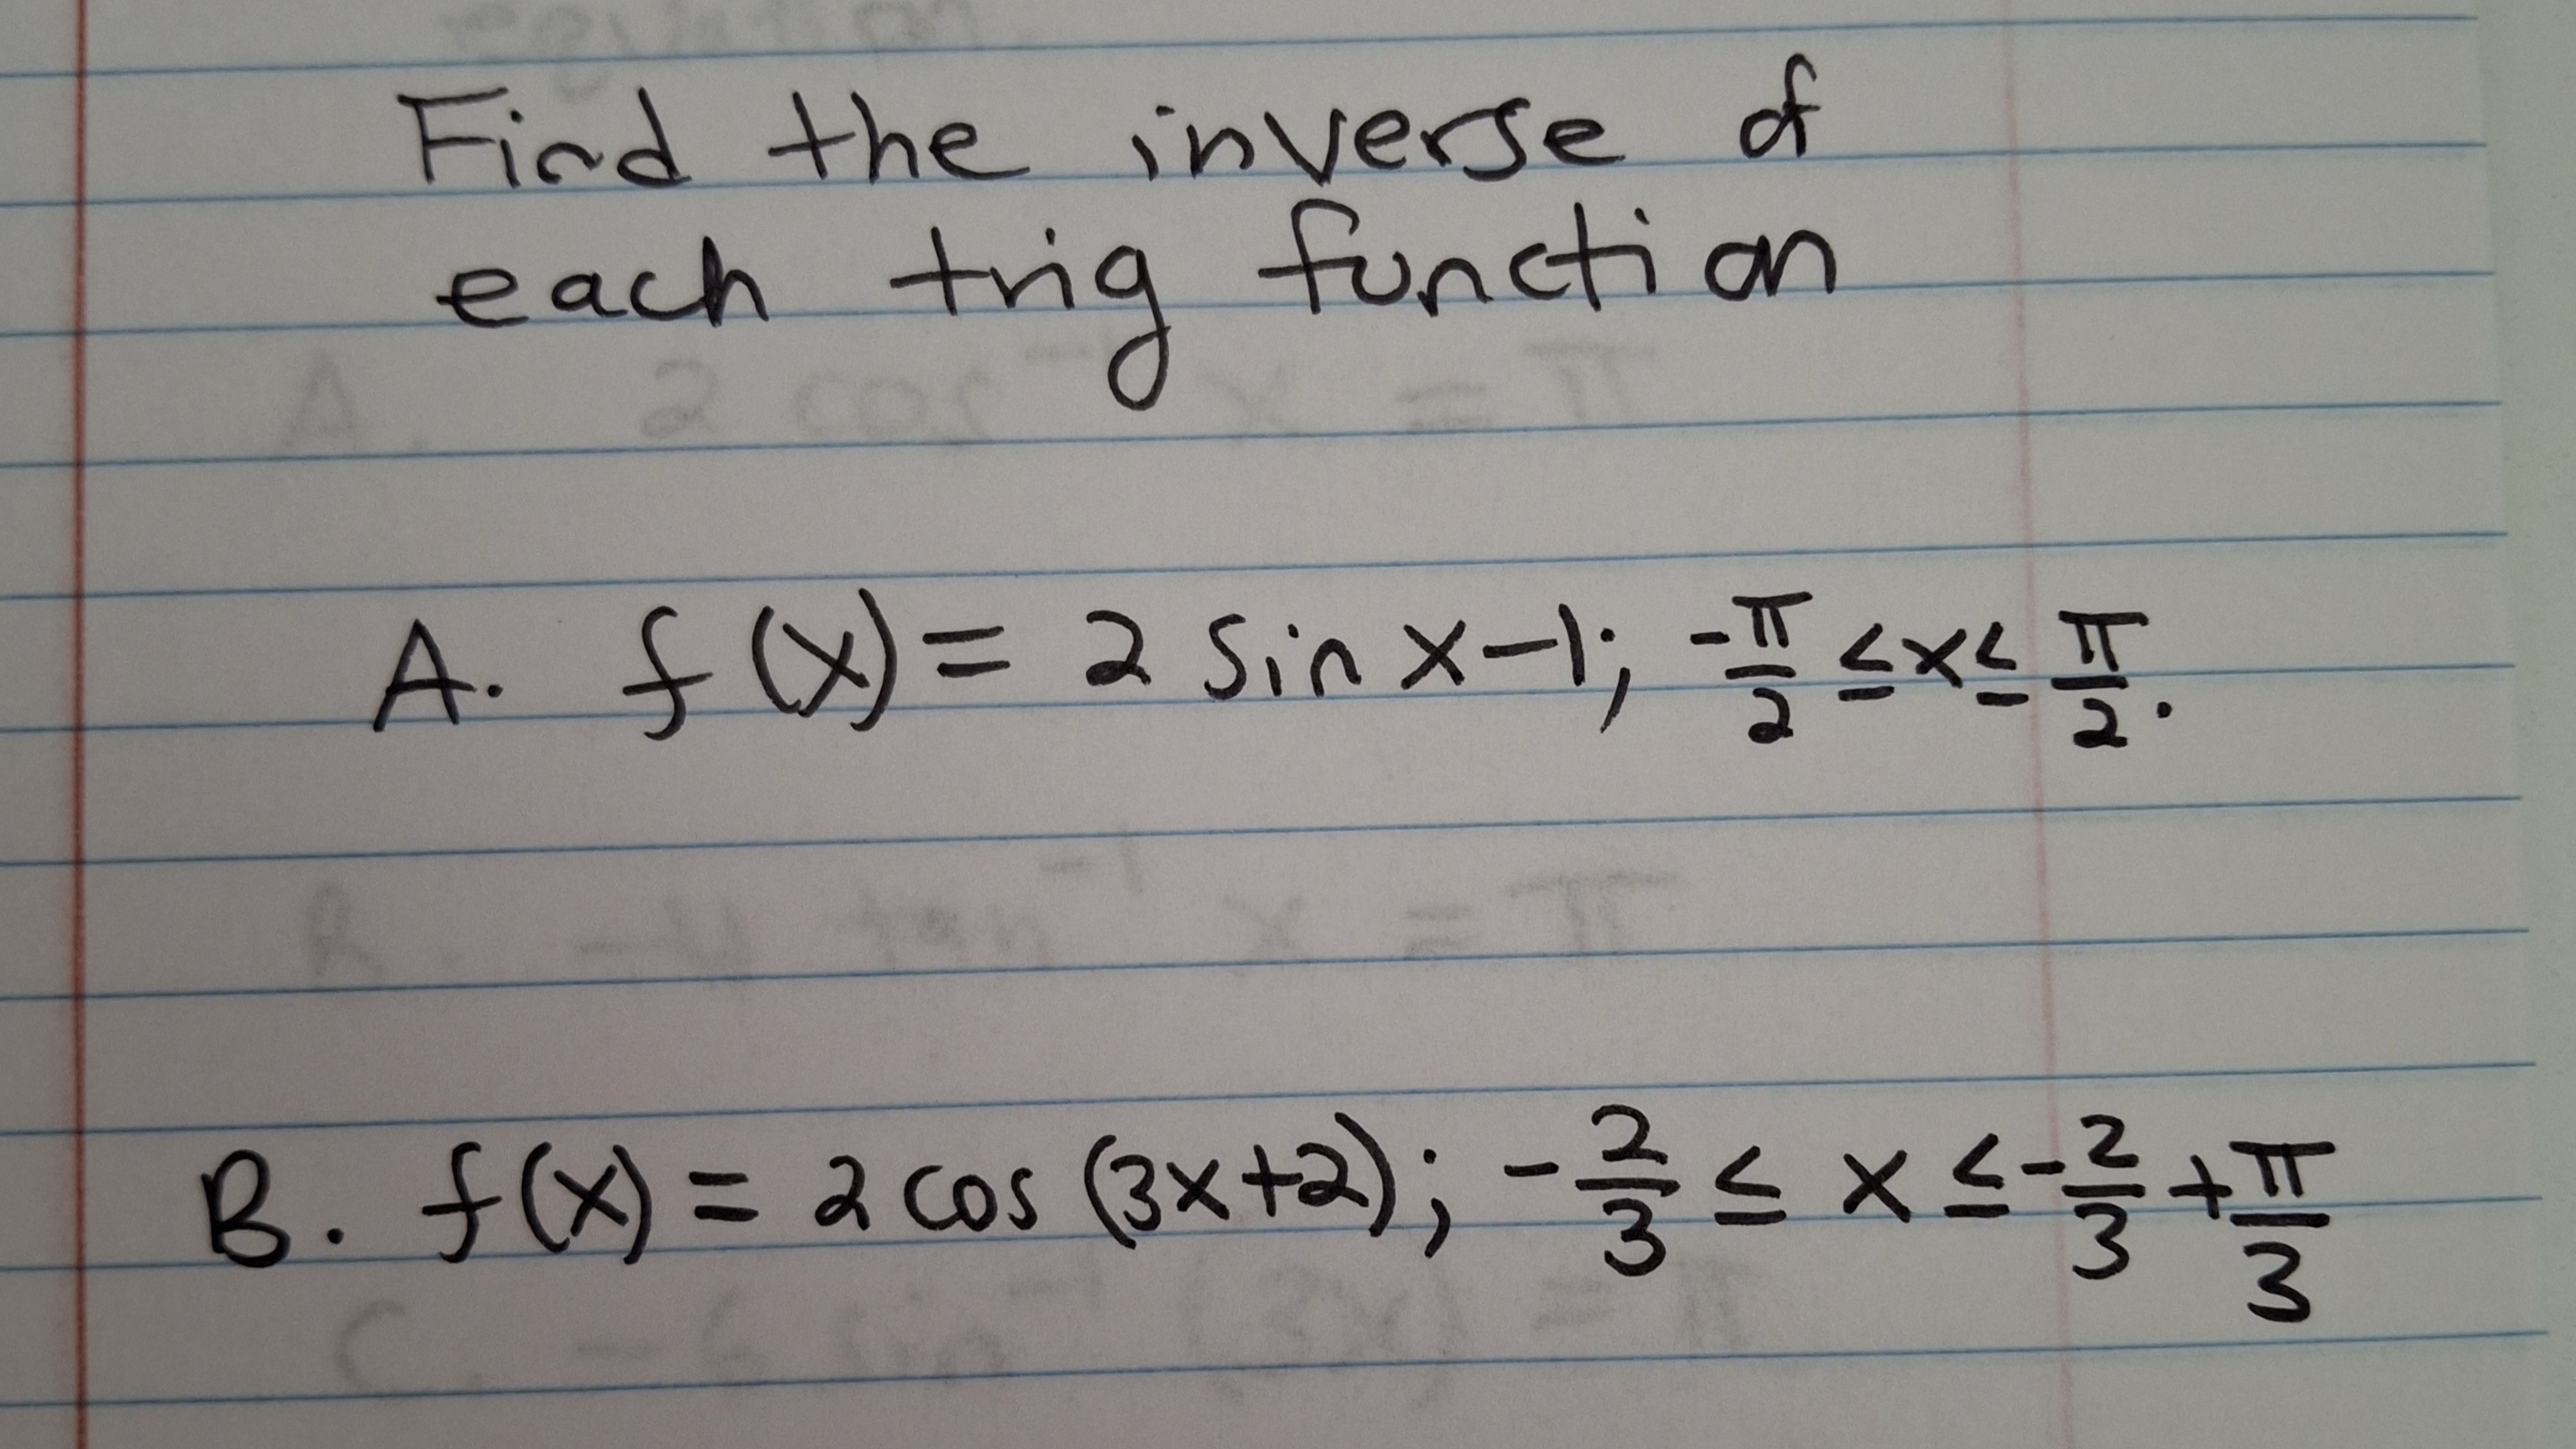 Find the inverse of
each trig function
A. f(x) = 2 sin x - 1; -π/2 ≤ x ≤ π/2.
B. f(x) = 2 cos (3x+2); -2/3 ≤ x ≤ -2/3 + π/3